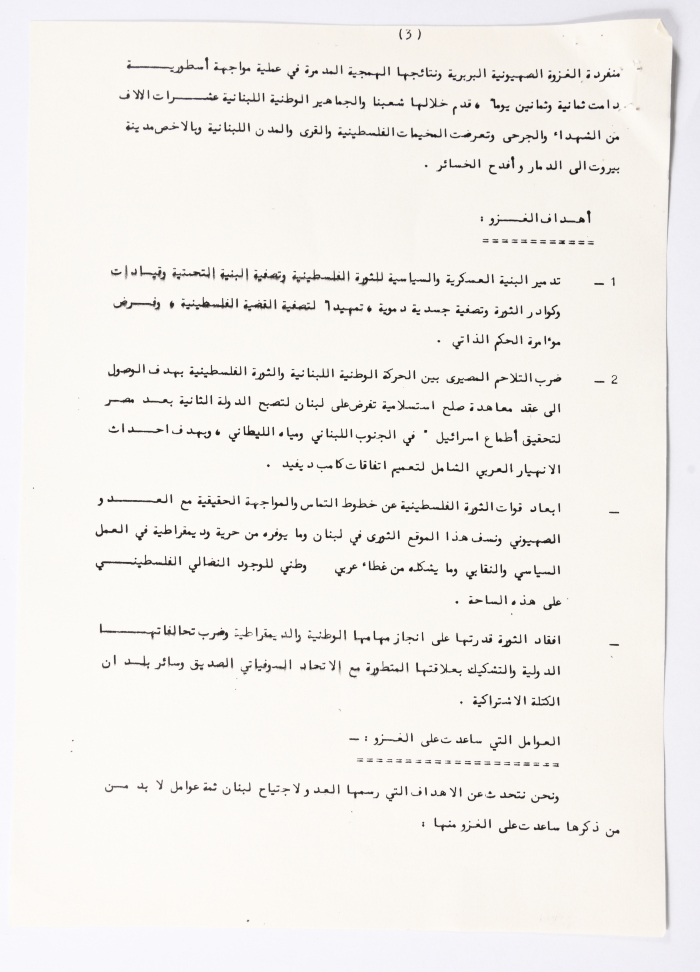 (3)
منفردة الغزوة الصهيونية البربرية ونتائجها الهمجية المدمرة في عملية مواجهة أسطورية
دامت ثمانية وثمانين يوما ، قدم خلالها شعبنا والجماهير الوطنية اللبنانية عشرات الالاف
من الشهداء والجرحى وتعرضت المخيمات الفلسطينية والقرى والمدن اللبنانية وبالاخص مدينة
بيروت الى الدمار وأفدح الخسائر .
أهداف الغزو :
============
1 – تدمير البنية العسكرية والسياسية للثورة الفلسطينية وتصفية البنية التحتية وقيادات
وكوادر الثورة وتصفية جسدية دموية ، تمهيدا لتصفية القضية الفلسطينية ، وفرض
موءامرة الحكم الذاتي .
2 – ضرب التلاحم المصيرى بين الحركة الوطنية اللبنانية والثورة الفلسطينية بهدف الوصول
الى عقد معاهدة صلح استسلامية تفرض على لبنان لتصبح الدولة الثانية بعد مصر
لتحقيق أطماع اسرائيل " في الجنوب اللبناني ومياه الليطاني ، وبهدف احداث
الانهيار العربي الشامل لتعميم اتفاقات كامب ديفيد .
– ابعاد قوات الثورة الفلسطينية عن خطوط التماس والمواجهة الحقيقية مع العدو
الصهيوني ونسف هذا الموقع الثورى في لبنان وما يوفره من حرية وديمقراطية في العمل
السياسي والنقابي وما يشكله من غطاء عربي وطني للوجود النضالي الفلسطيني
على هذه الساحة .
– افقاد الثورة قدرتها على انجاز مهامها الوطنية والديمقراطية وضرب تحالفاتها
الدولية والتشكيك بعلاقتها المتطورة مع الاتحاد السوفياتي الصديق وسائر بلدان
الكتلة الاشتراكية .
العوامل التي ساعدت على الغزو : –
=====================
ونحن نتحدث عن الاهداف التي رسمها العدو لاجتياح لبنان ثمة عوامل لا بد من
من ذكرها ساعدت على الغزو منها :